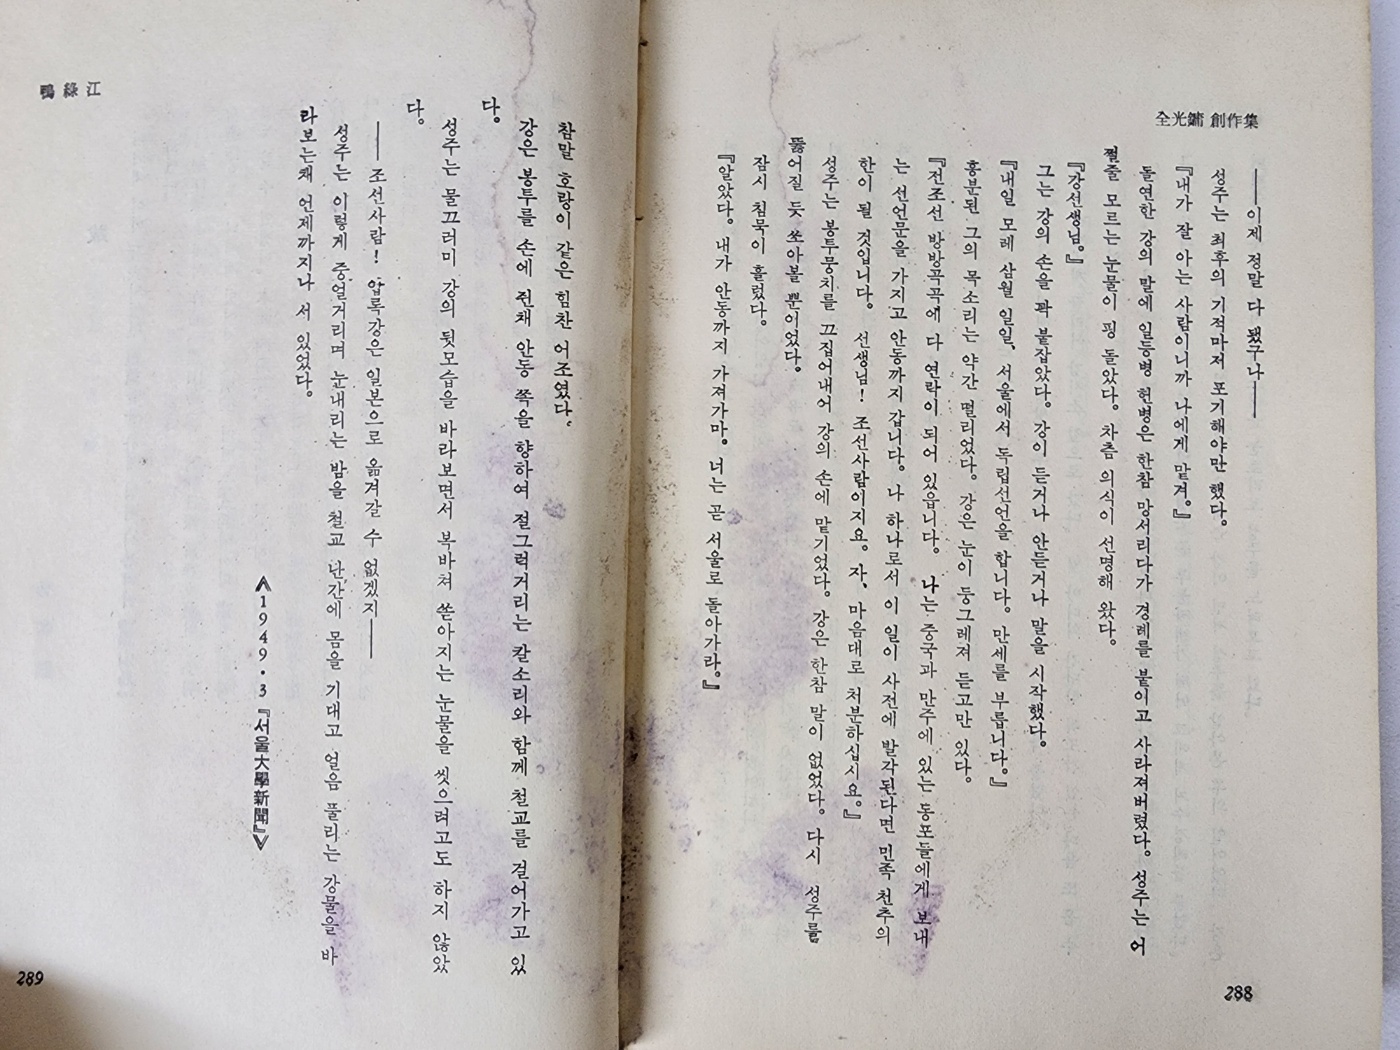 全光鏞 創作集
――이제 정말 다 됐구나――
성주는 최후의 기적마저 포기해야만 했다.
『내가 잘 아는 사람이니까 나에게 맡겨。』
돌연한 강의 말에 일등병 헌병은 한참 망서리다가 경례를 붙이고 사라져버렸다。 성주는 어
쩔줄 모르는 눈물이 핑 돌았다。 차츰 의식이 선명해 왔다。
『강선생님。』
그는 강의 손을 꽉 붙잡았다。 강이 듣거나 안듣거나 말을 시작했다。
『내일 모레 삼월 일일、 서울에서 독립선언을 합니다。 만세를 부릅니다。』
흥분된 그의 목소리는 약간 떨리었다。 강은 눈이 둥그레져 듣고만 있다。
『전조선 방방곡곡에 다 연락이 되어 있읍니다。 나는 중국과 만주에 있는 동포들에게 보내
는 선언문을 가지고 안동까지 갑니다。 나 하나로서 이 일이 사전에 발각된다면 민족 천추의
한이 될 것입니다。 선생님! 조선사람이지요。 자、 마음대로 처분하십시요。』
성주는 봉투뭉치를 끄집어내어 강의 손에 맡기었다。 강은 한참 말이 없었다。 다시 성주를
뚫어질 듯 쏘아볼 뿐이었다。
잠시 침묵이 흘렀다。
『알았다。 내가 안동까지 가져가마。 너는 곧 서울로 돌아가라。』
288
鴨綠江
참말 호랑이 같은 힘찬 어조였다.
강은 봉투를 손에 쥔채 안동 쪽을 향하여 절그럭거리는 칼소리와 함께 철교를 걸어가고 있
다。
성주는 물끄러미 강의 뒷모습을 바라보면서 복바쳐 쏟아지는 눈물을 씻으려고도 하지 않았
다。
――조선사람! 압록강은 일본으로 옮겨갈 수 없겠지――
성주는 이렇게 중얼거리며 눈내리는 밤을 철교 난간에 몸을 기대고 얼음 풀리는 강물을 바
라보는채 언제까지나 서 있었다。
《1949・3『서울大學新聞』》
289